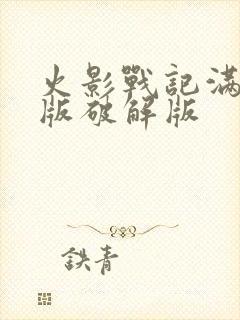 火影戰記滿
版破解版
鉄青